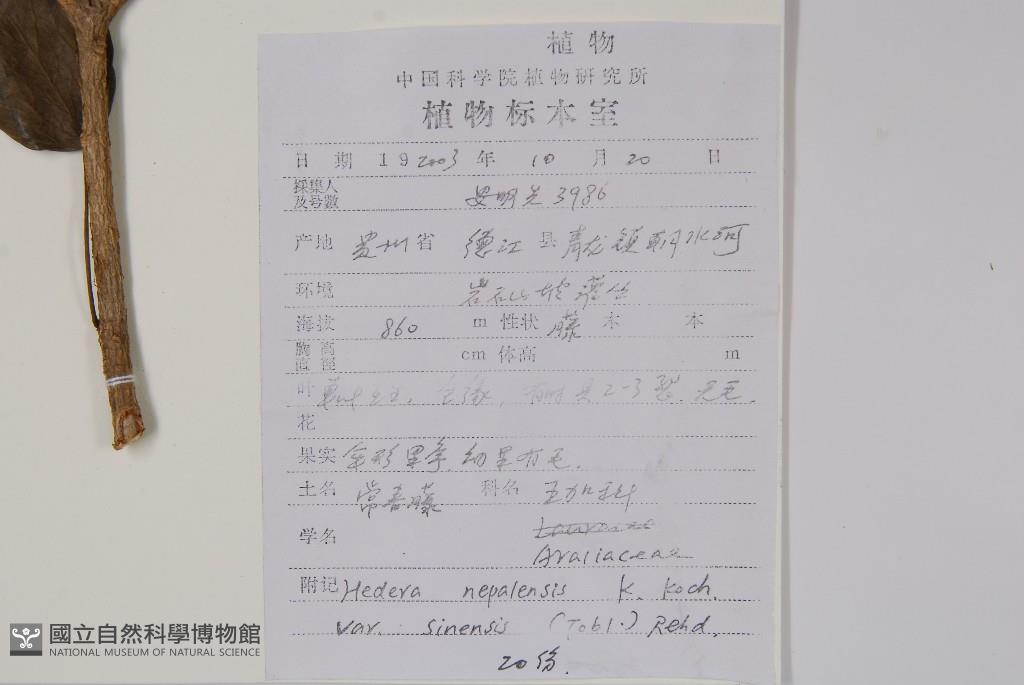 植物
中国科学院植物研究所
植物标本室
日 期 19 2003 年 10 月 20 日
採集人
及号数 安明先 3986
产地 贵州 省 德江 县 青龙镇朝水河
环境 岩石山坡灌丛
海拔 860 m 性状 藤 木 本
胸高
直径 cm 体高 m
叶 单叶互生. 全缘, 有时具2-3裂. 无毛.
花
果实 伞形果序. 幼果有毛.
土名 常春藤 科名 五加科
学名
Araliaceae
附记 Hedera nepalensis K. Koch.
var. sinensis (Tobl.) Rehd.
20份.
國立自然科學博物館
NATIONAL MUSEUM OF NATURAL SCIENCE